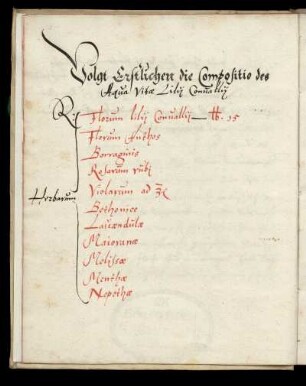 Volgt Erstlichen die Compositio des
Aqua Vitæ Lilij Conuallij
R: Florum lilij Conuallij — ℔. 15
Florum
Borraginis
Rosarum rubr
Violarum ad ℥
Herbarum
Bethonicæ
Lauendulæ
Maioranæ
Melissæ
Menthæ
Nepethæ